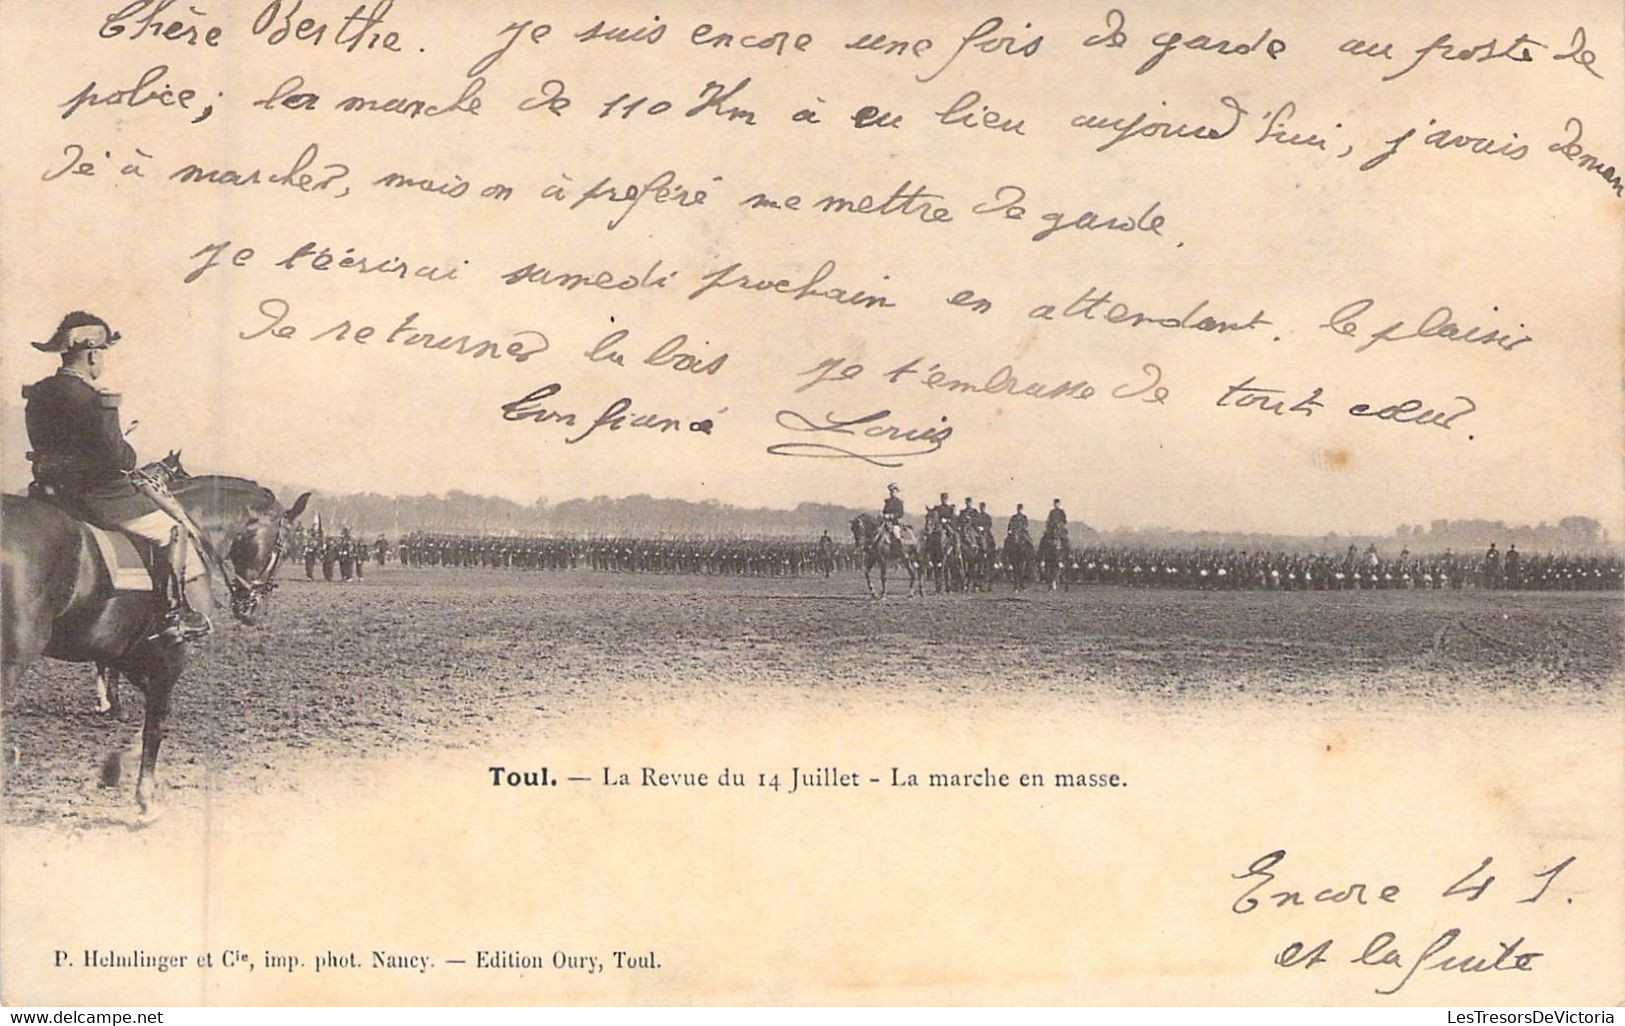 Chère Berthe. Je suis encore une fois de garde au poste de
police; la marche de 110 Km à eu lieu aujourd'hui, j'avais deman
dé à marcher, mais on à préféré me mettre de garde.
Je t'écrirai samedi prochain en attendant. le plaisir
de retourner la bas je t'embrasse de tout cœur.
Ton fiancé Louis
Toul. — La Revue du 14 Juillet - La marche en masse.
Encore 41 J.
et la fuite
P. Helmlinger et Cie, imp. phot. Nancy. — Edition Oury, Toul.
delcampe.net
LesTresorsDeVictoria